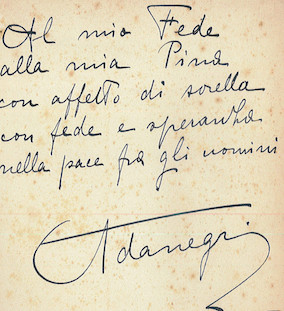 Al mio Fede
alla mia Pina
con affetto di sorella
con fede e speranza
nella pace fra gli uomini
Adanegri